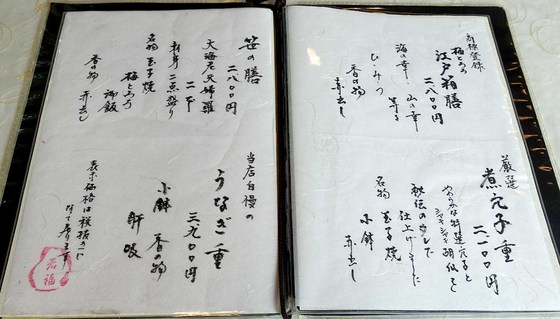 商標登録
梅とろろ
江戸箱膳
二八〇〇円
海の幸 山の幸
香の物
赤出し
厳選
煮穴子重
二一〇〇円
やわらかな特選穴子と
シャキシャキ胡瓜を
秘伝のタレで
仕上げました
名物 玉子焼
小鉢
赤出し
笹の膳
二八〇〇円
大海老天婦羅
二本
刺身二点盛り
名物 玉子焼
梅とろろ御飯
香の物 赤出し
当店自慢の
うなぎ重
三九〇〇円
小鉢 香の物
肝吸
表示価格は税抜きに
なって居ります